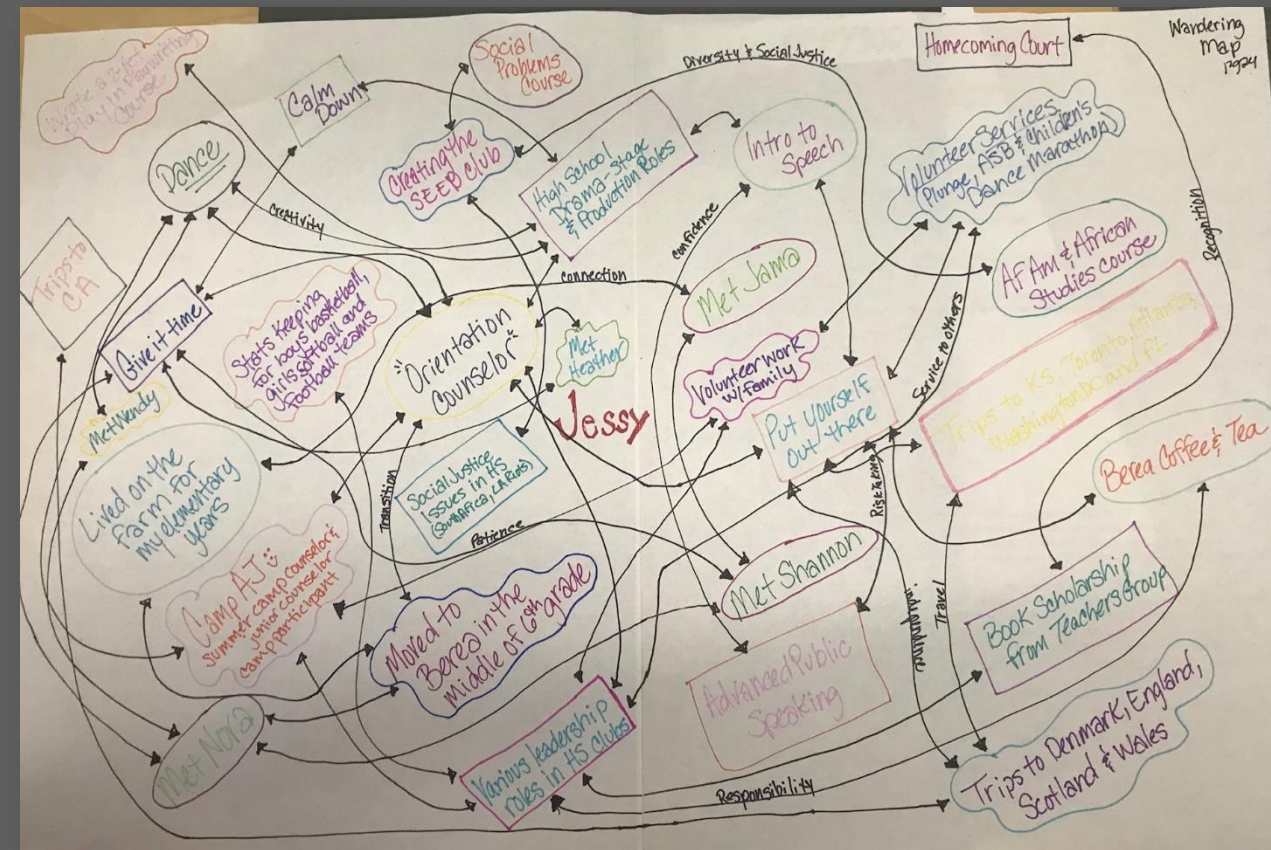 Wandering
Map
Wrote a 2-act
play in Playwriting
Course
Calm
Down
Social
Problems
Course
Diversity & Social Justice
Homecoming Court
Dance
Creating the
SEEB Club
High School
Drama-Stage
& Production Roles
Intro to
Speech
Volunteer Services
Plunge, ASB & Children's
Dance Marathon)
Creativity
confidence
Recognition
Trips to
CA
connection
Met Jama
Af Am & African
Studies course
Give it time
Stats Keeping
for boys basketball,
girls softball and
football teams
"Orientation
Counselor"
Met
Heather
Volunteer work
w/family
Service to others
Trips to KS, Toronto, Atlanta,
Washington DC and FL
Met Wendy
Jessy
Put yourself
out there
Berea Coffee & Tea
Lived on the
farm for
my elementary
years
Transition
Social Justice
Issues in HS
(South Africa, LA Riots)
Risktaking
Patience
Camp AJ
summer camp counselor &
junior counselor
camp participant
Moved to
Berea in the
middle of 6th grade
Met Shannon
Independence
Travel
Book Scholarship
from Teachers Group
Advanced Public
Speaking
Met Nora
Various leadership
roles in HS Clubs
Responsibility
Trips to Denmark, England,
Scotland & Wales